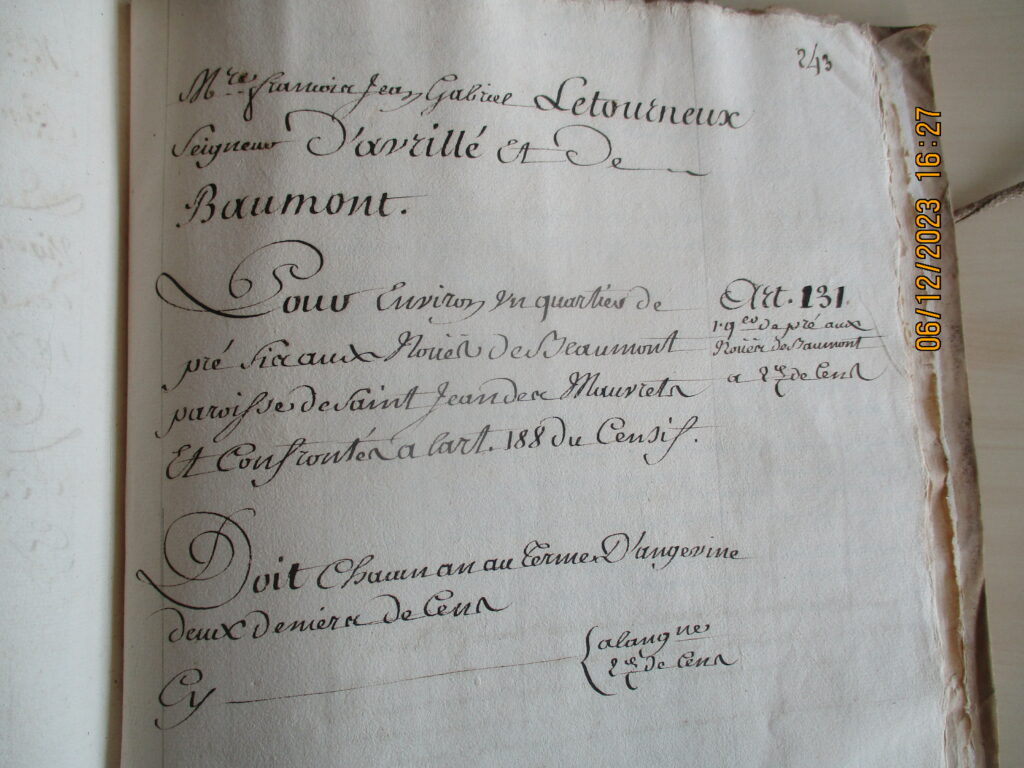 243
Mre francois Jean Gabriel Letourneux
Seigneur D'avrillé Et De
Baumont.
Pour Environ un quartier de
pré sis aux Noües De Beaumont
paroisse de Saint Jean des Mauvrets
Et Confrontés a lart. 188 du Censif.
Art. 131.
1 qer de pré aux
Noües de Baumont
a 2d de Cens
Doit Chacun an au terme D'angevine
deux deniers de Cens
Cy
a langne
2d de Cens
06/12/2023 16:27